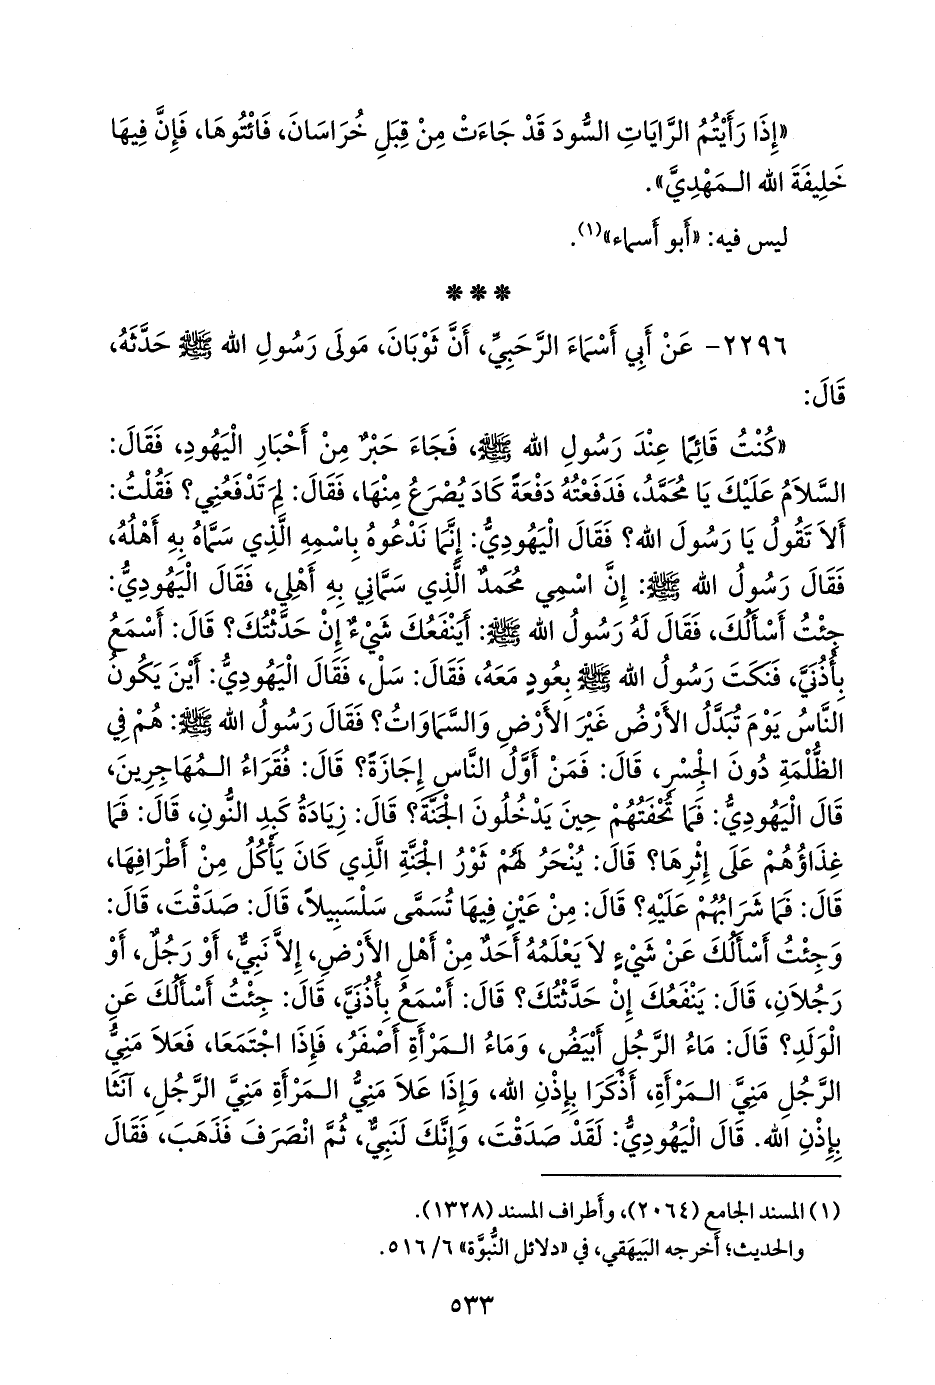 «إِذَا رَأَيْتُمُ الرَّايَاتِ السُّودَ قَدْ جَاءَتْ مِنْ قِبَلِ خُرَاسَانَ، فَائْتُوهَا، فَإِنَّ فِيهَا
خَلِيفَةَ الله الـمَهْدِيَّ».
ليس فيه: «أَبو أَسماء»(١).
* * *
٢٢٩٦- عَنْ أَبِي أَسْمَاءَ الرَّحَبِيِّ، أَنَّ ثَوْبَانَ، مَولَى رَسُولِ الله ﷺ حَدَّثَهُ،
قَالَ:
«كُنْتُ قَائِمًا عِنْدَ رَسُولِ الله ﷺ، فَجَاءَ حَبْرٌ مِنْ أَحْبَارِ الْيَهُودِ، فَقَالَ:
السَّلاَمُ عَلَيْكَ يَا مُحَمَّدُ، فَدَفَعْتُهُ دَفْعَةً كَادَ يُصْرَعُ مِنْهَا، فَقَالَ: لِمَ تَدْفَعُنِي؟ فَقُلْتُ:
أَلاَ تَقُولُ يَا رَسُولَ الله؟ فَقَالَ الْيَهُودِيُّ: إِنَّمَا نَدْعُوهُ بِاسْمِهِ الَّذِي سَمَّاهُ بِهِ أَهْلُهُ،
فَقَالَ رَسُولُ الله ﷺ: إِنَّ اسْمِي مُحَمَدٌ الَّذِي سَمَّانِي بِهِ أَهْلِي، فَقَالَ الْيَهُودِيُّ:
جِئْتُ أَسْأَلُكَ، فَقَالَ لَهُ رَسُولُ الله ﷺ: أَيَنْفَعُكَ شَيْءٌ إِنْ حَدَّثْتُكَ؟ قَالَ: أَسْمَعُ
بِأُذُنَيَّ، فَنَكَتَ رَسُولُ الله ﷺ بِعُودٍ مَعَهُ، فَقَالَ: سَلْ، فَقَالَ الْيَهُودِيُّ: أَيْنَ يَكُونُ
النَّاسُ يَوْمَ تُبَدَّلُ الأَرْضُ غَيْرَ الأَرْضِ وَالسَّمَاوَاتُ؟ فَقَالَ رَسُولُ الله ﷺ: هُمْ فِي
الظُّلْمَةِ دُونَ الْجِسْرِ، قَالَ: فَمَنْ أَوَّلُ النَّاسِ إِجَازَةً؟ قَالَ: فُقَرَاءُ الـمُهَاجِرِينَ،
قَالَ الْيَهُودِيُّ: فَمَا تُحْفَتُهُمْ حِينَ يَدْخُلُونَ الْجَنَّةَ؟ قَالَ: زِيَادَةُ كَبِدِ النُّونِ، قَالَ: فَمَا
غِذَاؤُهُمْ عَلَى إِثْرِهَا؟ قَالَ: يُنْحَرُ لَهُمْ ثَوْرُ الْجَنَّةِ الَّذِي كَانَ يَأْكُلُ مِنْ أَطْرَافِهَا،
قَالَ: فَمَا شَرَابُهُمْ عَلَيْهِ؟ قَالَ: مِنْ عَيْنٍ فِيهَا تُسَمَّى سَلْسَبِيلاً، قَالَ: صَدَقْتَ، قَالَ:
وَجِئْتُ أَسْأَلُكَ عَنْ شَيْءٍ لاَ يَعْلَمُهُ أَحَدٌ مِنْ أَهْلِ الأَرْضِ، إِلاَّ نَبِيٌّ، أَوْ رَجُلٌ، أَوْ
رَجُلاَنِ، قَالَ: يَنْفَعُكَ إِنْ حَدَّثْتُكَ؟ قَالَ: أَسْمَعُ بِأُذُنَيَّ، قَالَ: جِئْتُ أَسْأَلُكَ عَنِ
الْوَلَدِ؟ قَالَ: مَاءُ الرَّجُلِ أَبْيَضُ، وَمَاءُ الـمَرْأَةِ أَصْفَرُ، فَإِذَا اجْتَمَعَا، فَعَلاَ مَنِيُّ
الرَّجُلِ مَنِيَّ الـمَرْأَةِ، أَذْكَرَا بِإِذْنِ الله، وَإِذَا عَلاَ مَنِيُّ الـمَرْأَةِ مَنِيَّ الرَّجُلِ، آنَثَا
بِإِذْنِ الله. قَالَ الْيَهُودِيُّ: لَقَدْ صَدَقْتَ، وَإِنَّكَ لَنَبِيٌّ، ثُمَّ انْصَرَفَ فَذَهَبَ، فَقَالَ
(١) المسند الجامع (٢٠٦٤)، وأَطراف المسند (١٣٢٨).
والحديث؛ أَخرجه البَيهَقي، في «دلائل النُّبوَّة» ٦/ ٥١٦.
٥٣٣